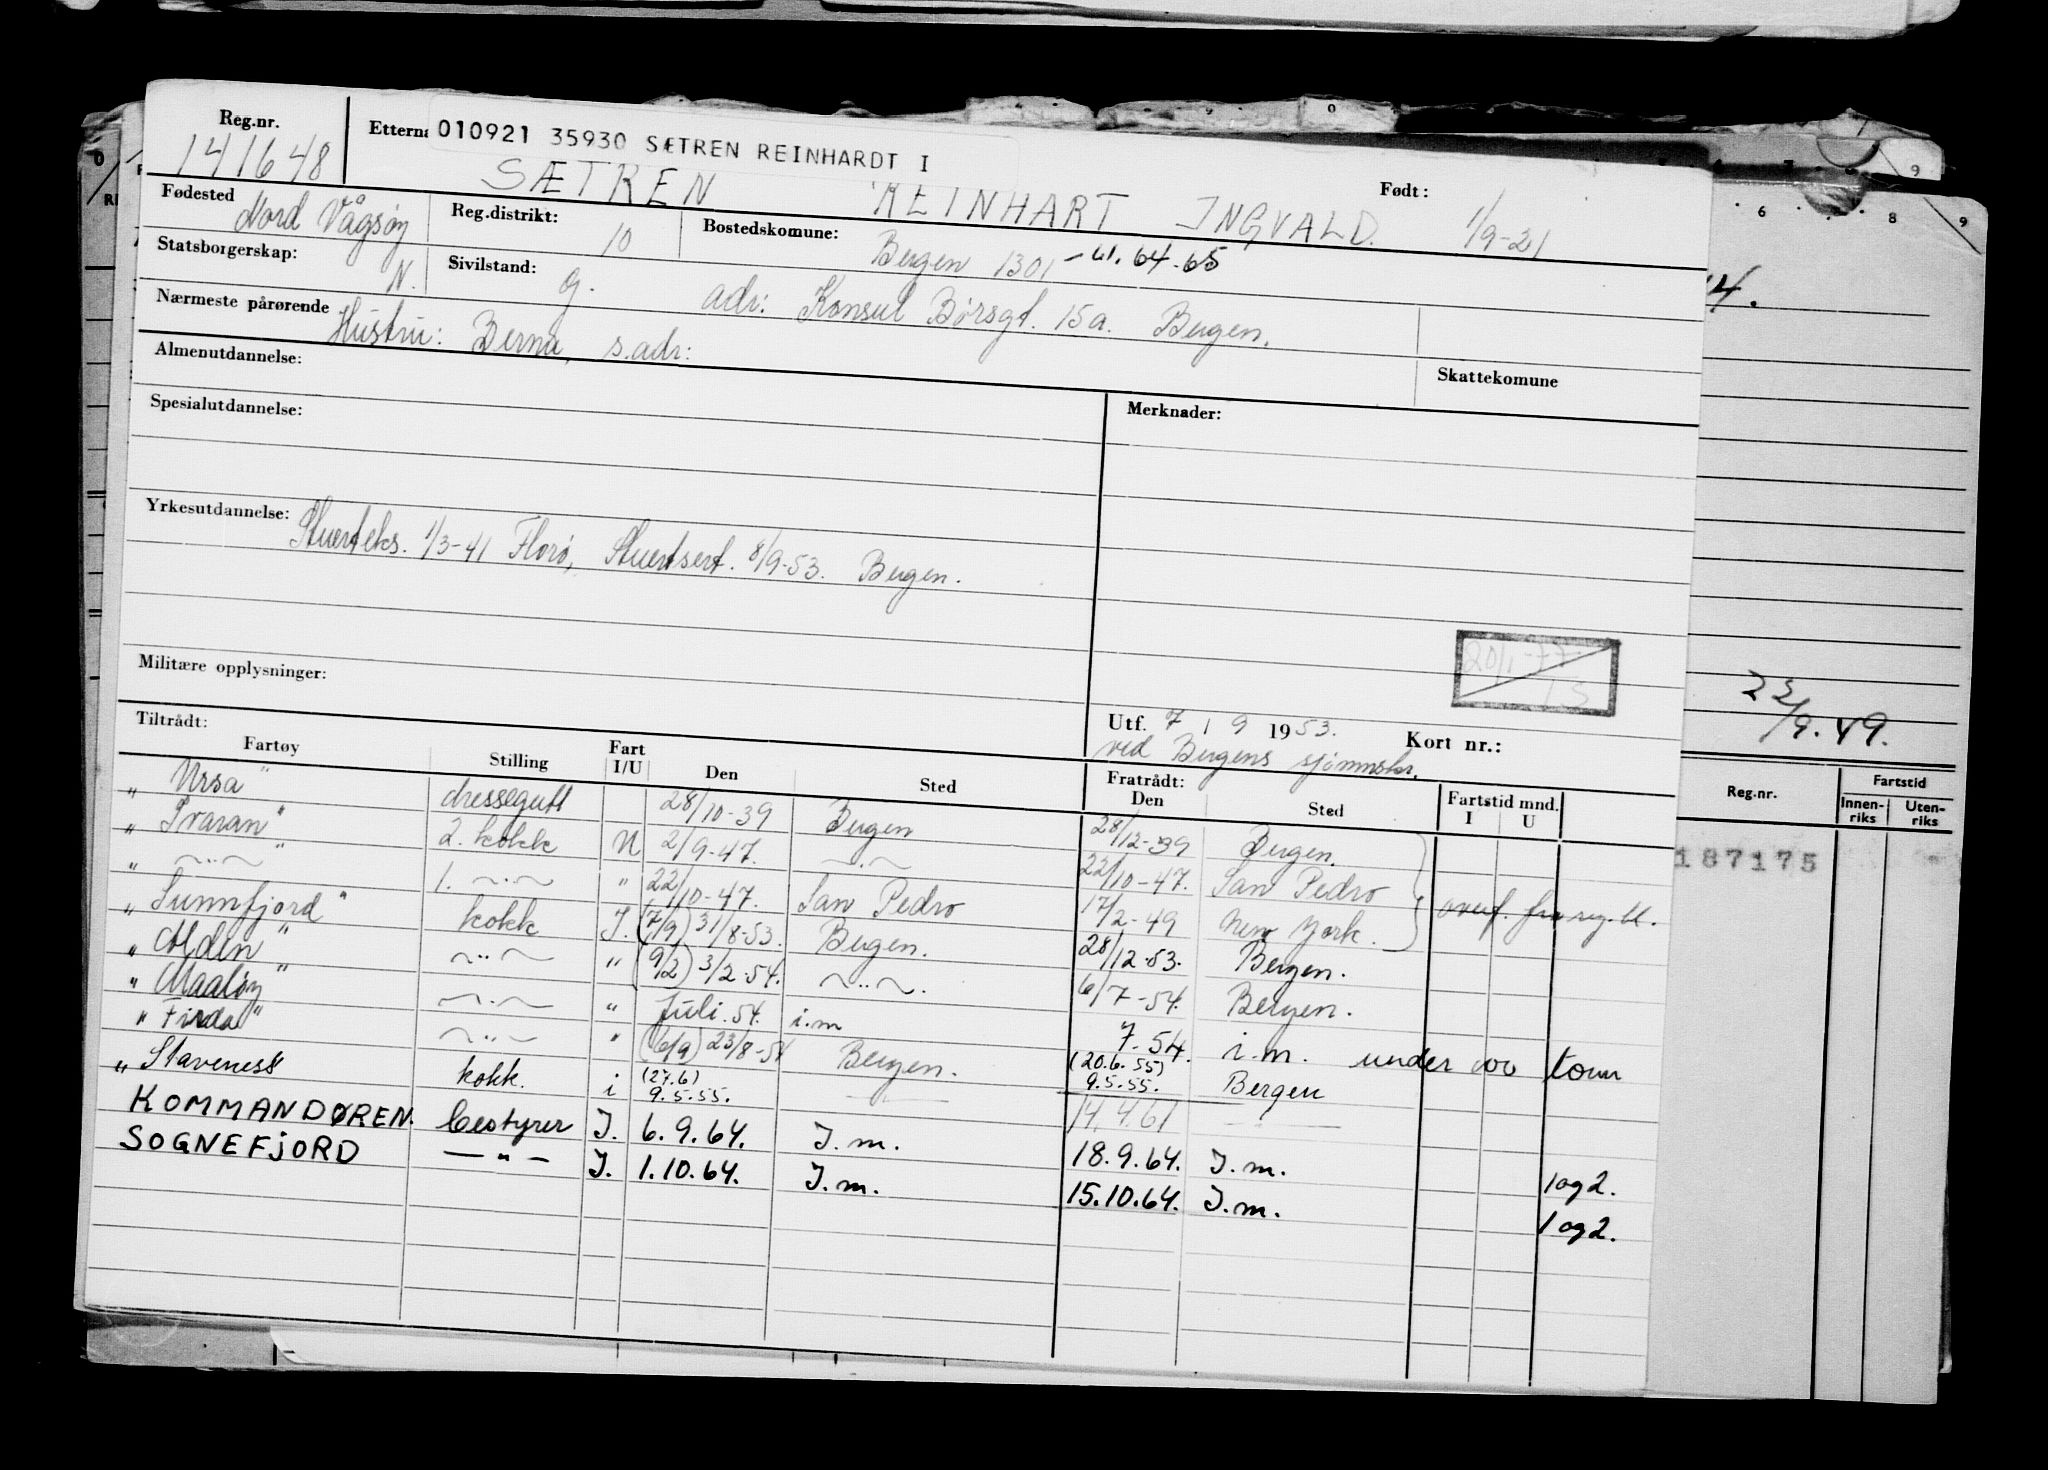 Reg.nr. 141648
Etterna 010921 35930 SÆTREN REINHARDT I
SÆTREN REINHART INGVALD. Født: 1/9-21
Fødested Nord Vågsøy Reg.distrikt: 10 Bostedskomune: Bergen 1301 - 61. 64. 65
Statsborgerskap: N. Sivilstand: g. adr: Konsul Børsgt. 15a. Bergen.
Nærmeste pårørende Hustru: Berna, s.adr:
Almenutdannelse: Skattekomune
Spesialutdannelse: Merknader:
Yrkesutdannelse: Stuerteks. 1/3-41 Florø, Stuertsert. 8/9-53. Bergen.
20/1-77
Militære opplysninger:
Utf. 7 / 9 1953. Kort nr.:
ved Bergens sjømmskr.
Tiltrådt: Fratrådt:
Fartøy Stilling Fart I/U Den Sted Den Sted Fartstid mnd. I U
" Ursa " dressegutt 28/10-39 Bergen 28/12-39 Bergen.
" Tvaran " 2. kokk U 2/9-47. -"- 22/10-47. San Pedro
" -"- " 1. -"- " 22/10-47. San Pedro 17/2-49 New York. overf. fra reg. bl.
" Sunnfjord " kokk I. (7/9) 31/8-53. Bergen. 28/12.53. Bergen.
" Alden " -"- " (9/2) 3/2.54. -"-. 6/7-54. Bergen.
" Maaløy " -"- " Juli.54. i.m 7.54. i.m. under 100 tonn
" Firda " -"- " (6/9) 23/8-54 Bergen. (20.6.55) 9.5.55. Bergen
" Staveness kokk. i (27.6) 9.5.55. 14.4.61
KOMMANDØREN. bestyrer I. 6.9.64. I.m. 18.9.64. I.m. 1 og 2.
SOGNEFJORD -"- I. 1.10.64. I.m. 15.10.64. I.m. 1 og 2.
6 8 9
4.
22/9.49.
Reg.nr. Fartstid
Innen-riks Uten-riks
187175